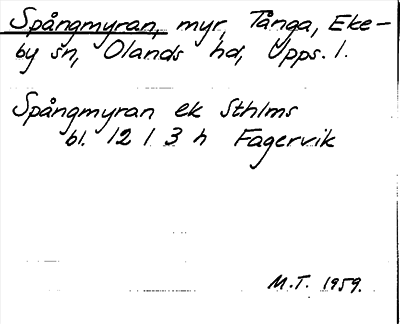 Spångmyran, myr, Tånga, Eke-
by sn, Olands hd, Upps. l.
Spångmyran ek Sthlms
bl. 12 1 3 h Fagervik
M.T. 1959.